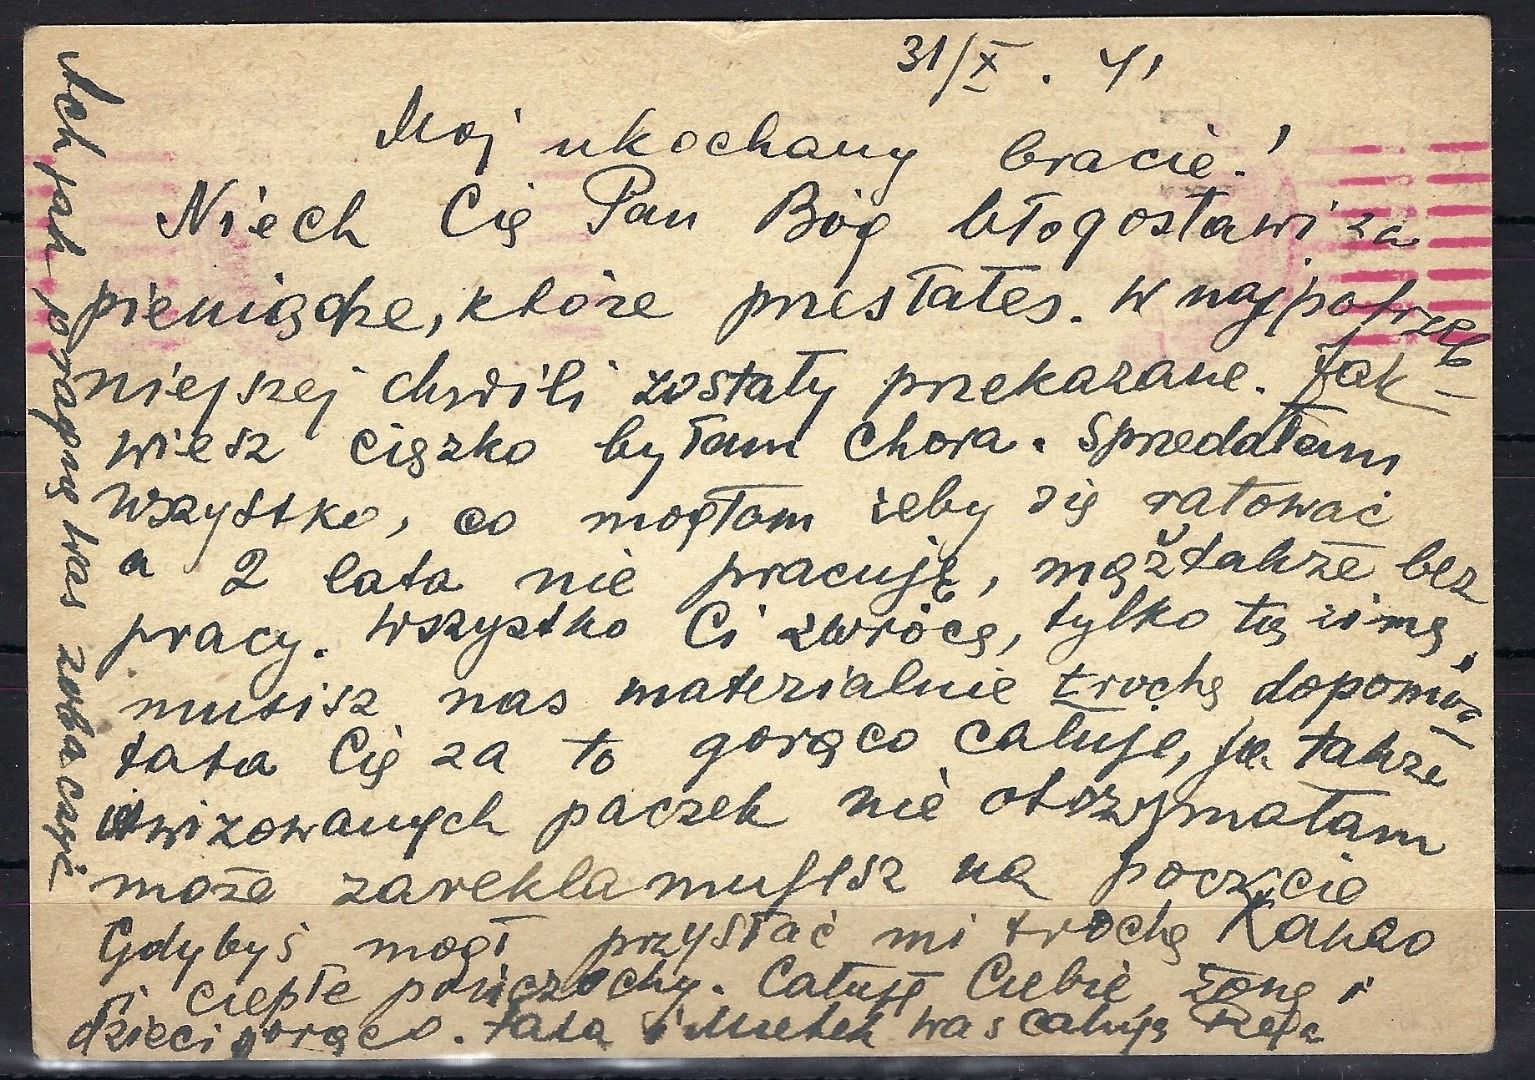 31/X. 41
Moj ukochany bracie!
Niech Cię Pan Bóg błogosławi za
pieniądze, które przesłałeś. W najpotrzeb
niejszej chwili zostały przekazane. Jak
wiesz ciężko byłam chora. Sprzedałam
wszystko, co mogłam żeby się ratować
a 2 lata nie pracuję, mąż także bez
pracy. Wszystko Ci zwrócę, tylko tą zimę,
musisz nas materialnie trochę dopomóc
tata Cię za to gorąco całuje, ja także
awizowanych paczek nie otrzymałam
może zareklamujesz na poczcie
Gdybyś mógł przysłać mi trochę Kakao
i ciepłe pończochy. Całuję Ciebie żonę i
dzieci gorąco. tata i Mietek was całują
Ach jak pragnę was zobaczyć